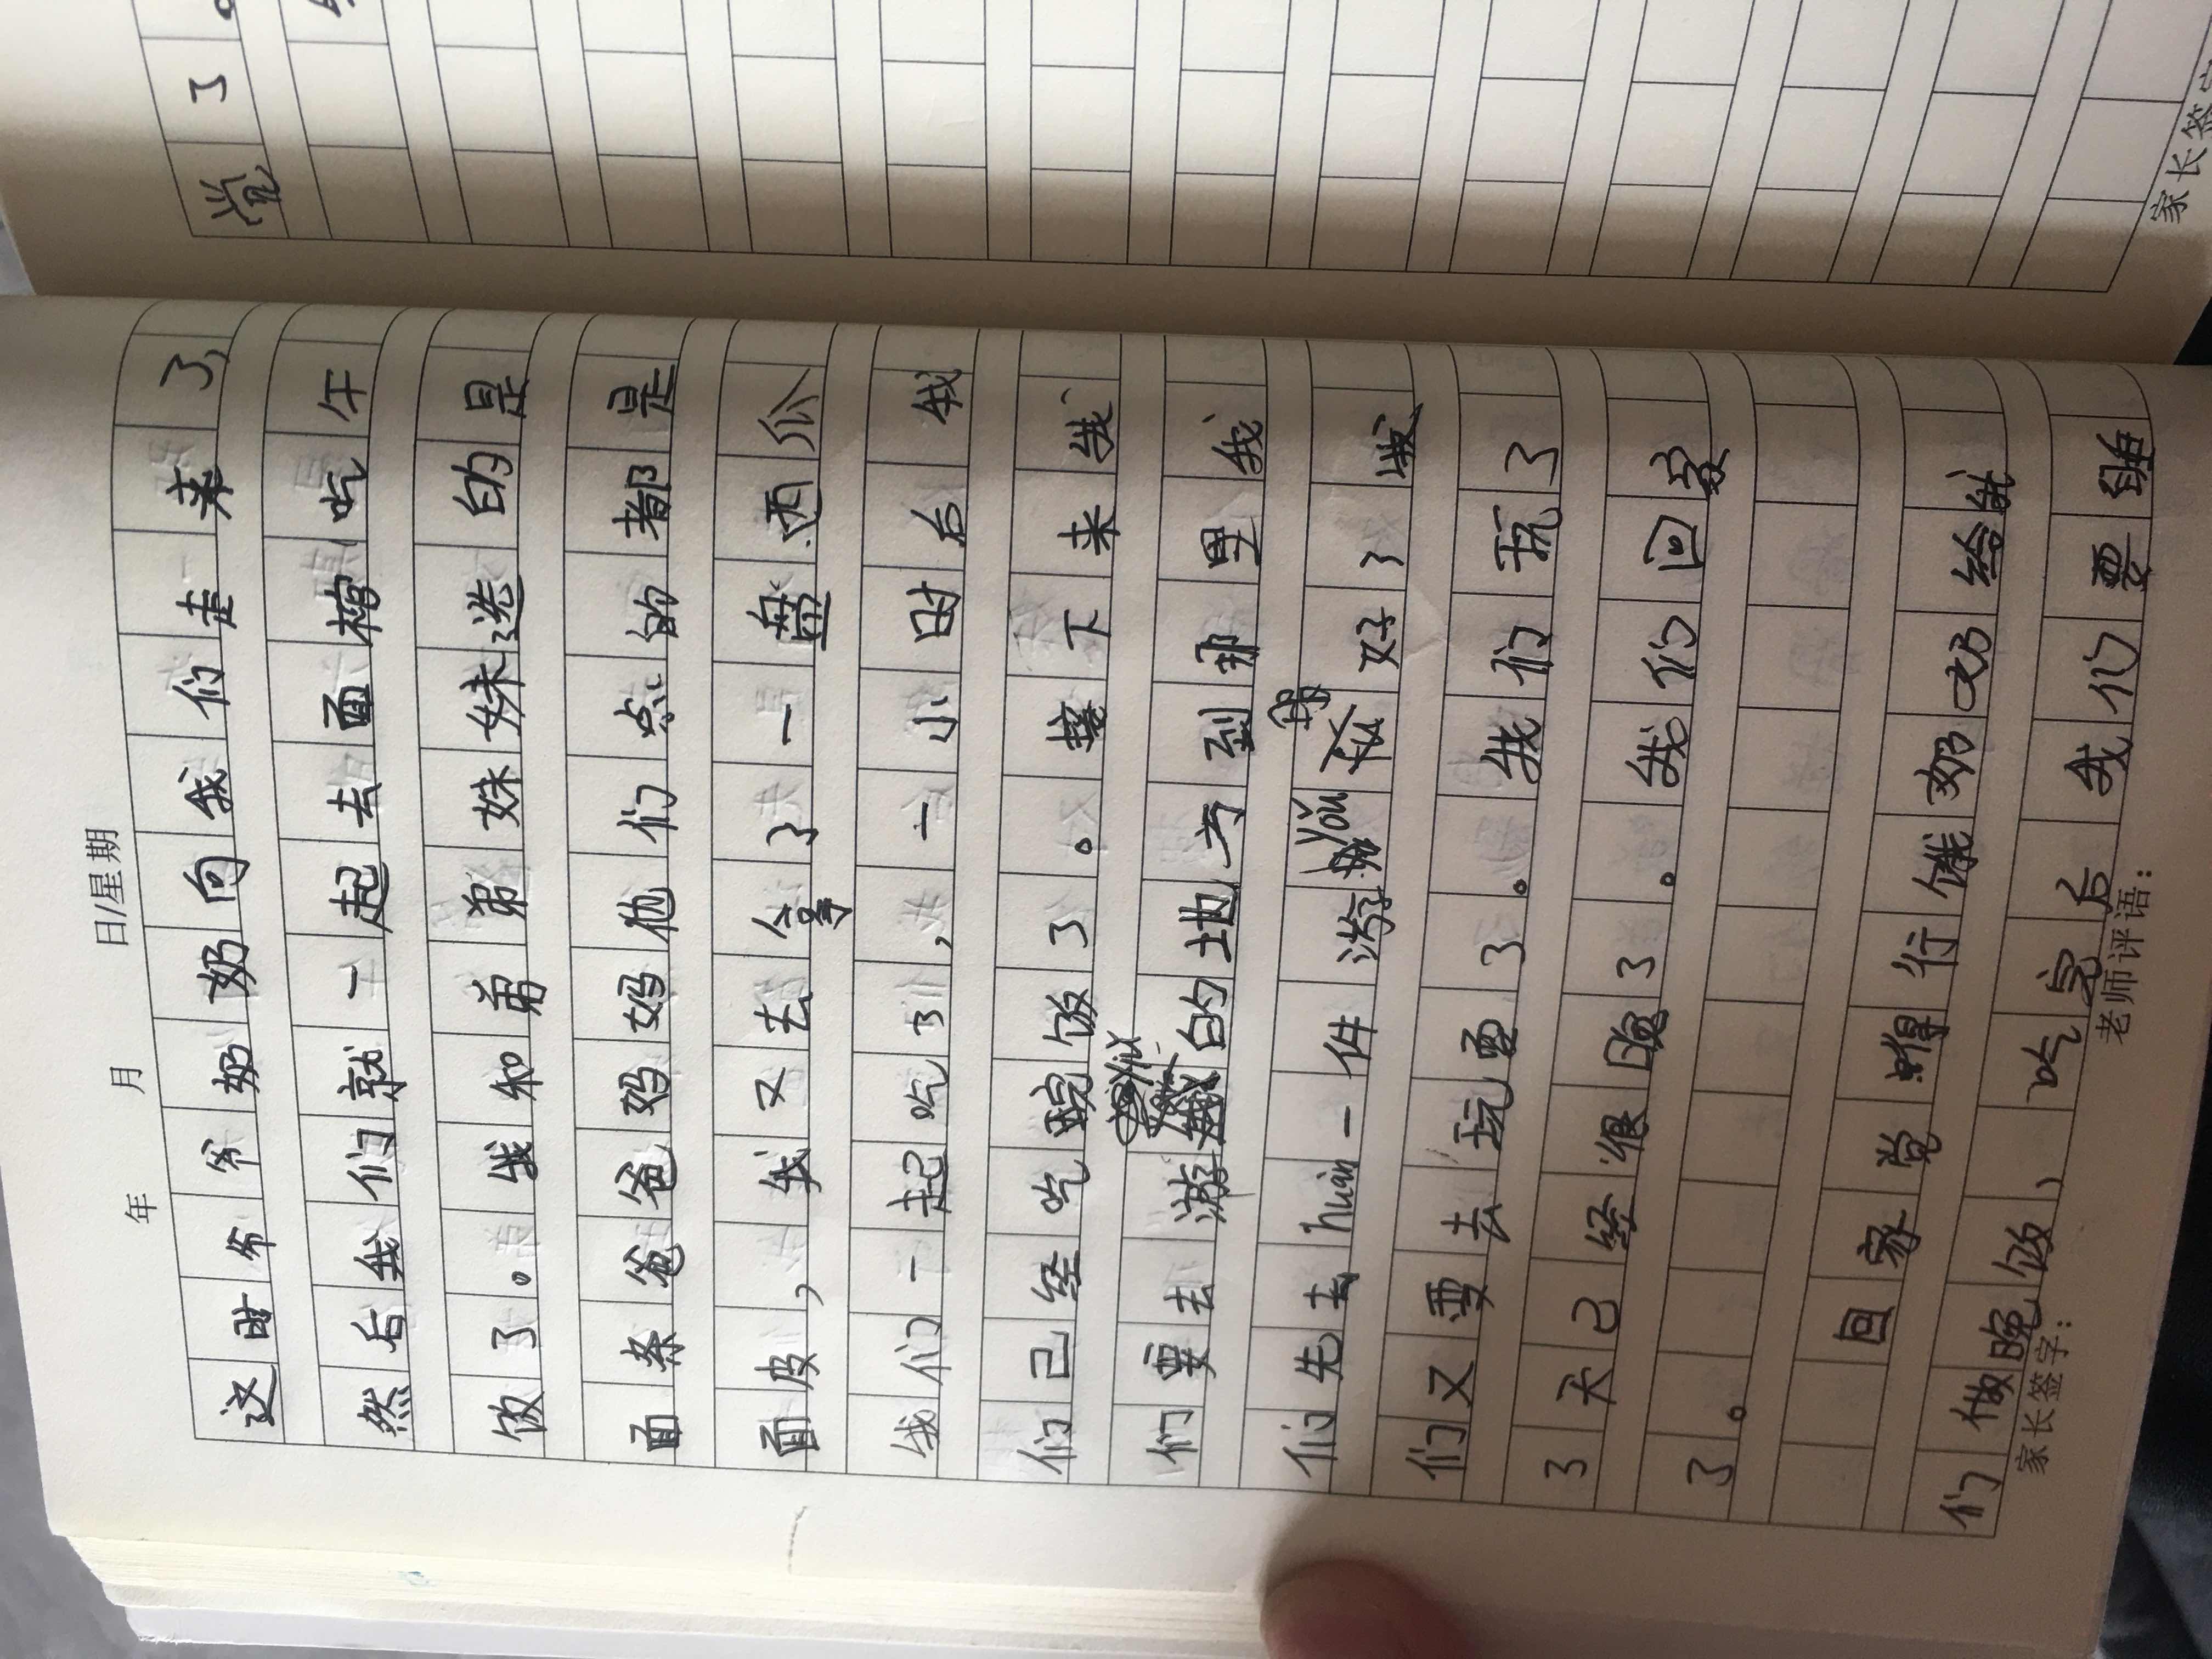 年 月 日/星期
这时爷爷奶奶向我们走来了,
然后我们就一起去面馆吃午
饭了。我和弟弟妹妹选的是
面条爸爸妈妈他们点的都是
面皮,我又去拿了一盘西瓜
我们一起吃了,一小时后我
们已经吃完饭了。接下来我
们要去游的地方到那里我
们先去huàn一件游yǒu好了我
们又要去玩耍了。我们玩了
3天已经很晚了。我们回家
了。
回家觉得行饿奶奶给我
们做晚饭,吃完后我们要睡
家长签字: 老师评语:
觉了。
家长签字